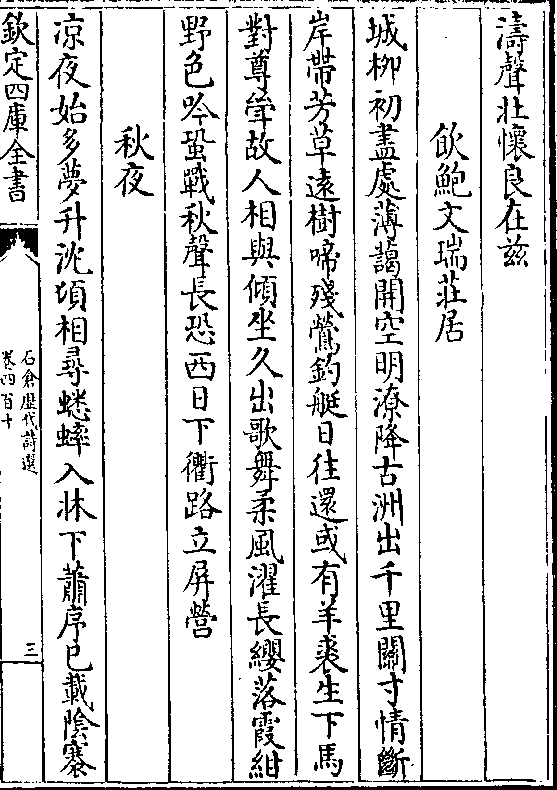 濤聲壯懷良在兹
飲鮑文瑞莊居
城柳初盡處薄藹開空明潦降古洲出千里關寸情斷
岸帶芳草遠樹啼殘鶯釣艇日往還或有羊裘生下馬
對尊斝故人相與傾坐久出歌舞柔風濯長纓落霞紺
野色吟蛩戰秋聲長恐西日下衢路立屏營
秋夜
凉夜始多夢升沈頃相尋蟋蟀入牀下蕭序已載陰褰
欽定四庫全書
石倉歷代詩選
卷四百十
三